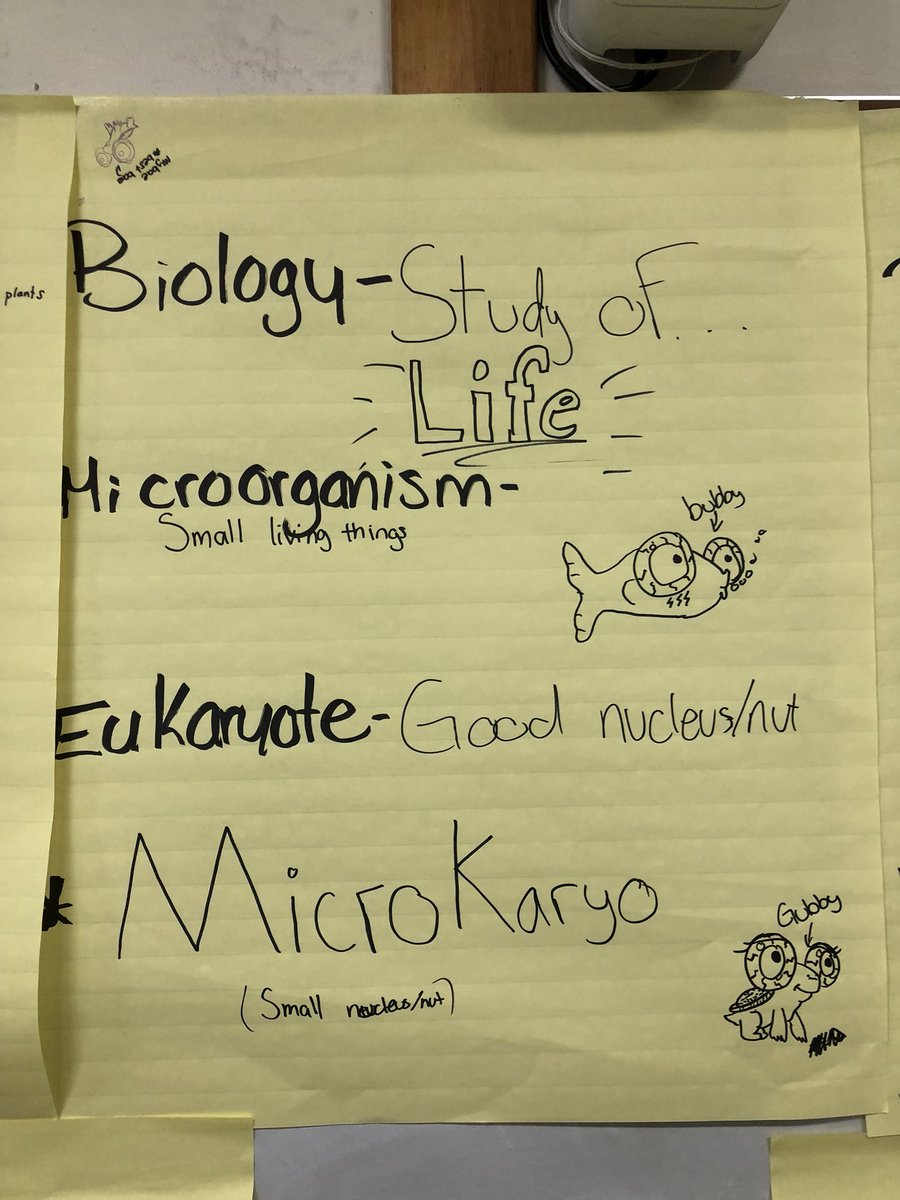 plants
Biology-Study of...
Life
Microorganism-
Small living things
bubby
Eukaryote-Good nucleus/nut
MicroKaryo
(Small neucleus/nut)
Gubby